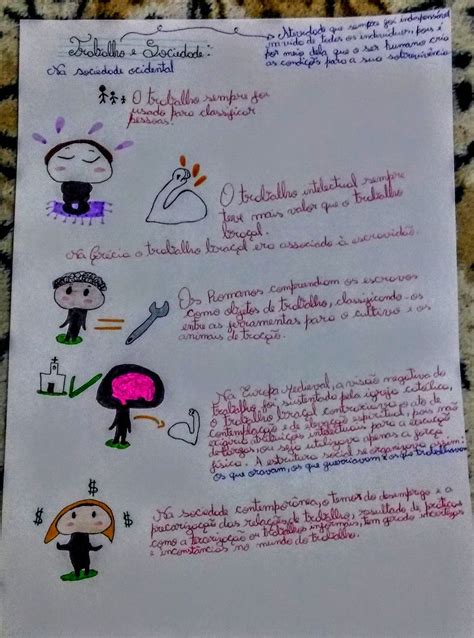 Trabalho e Sociedade:
Atividade que sempre foi indispensável
na vida de todos os indivíduos, pois é
por meio dela que o ser humano cria
as condições para a sua sobrevivência
Na sociedade ocidental
O trabalho sempre foi
usado para classificar
pessoas.
O trabalho intelectual sempre
teve mais valor que o trabalho
braçal.
Na Grécia o trabalho braçal era associado à escravidão.
Os Romanos compreendiam os escravos
como objetos de trabalho, classificando-os
entre as ferramentas para o cultivo e os
animais de tração.
Na Europa medieval, a visão negativa do
trabalho, foi sustentada pela igreja católica,
o trabalho braçal contrariava o ato de
contemplação e de elevação espiritual, pois não
exigiria intelectuais para a execução
de cargos, ou seja utilizava apenas a força
física. A estrutura social se organizava assim:
os que oravam, os que guerreavam e os que trabalhavam
Na sociedade contemporânea, o temor do desemprego e a
precarização das relações de trabalho, resultado de práticas
como a terceirização os trabalhos informais, tem gerado incertezas
e inconstâncias no mundo do trabalho.
$ $ $